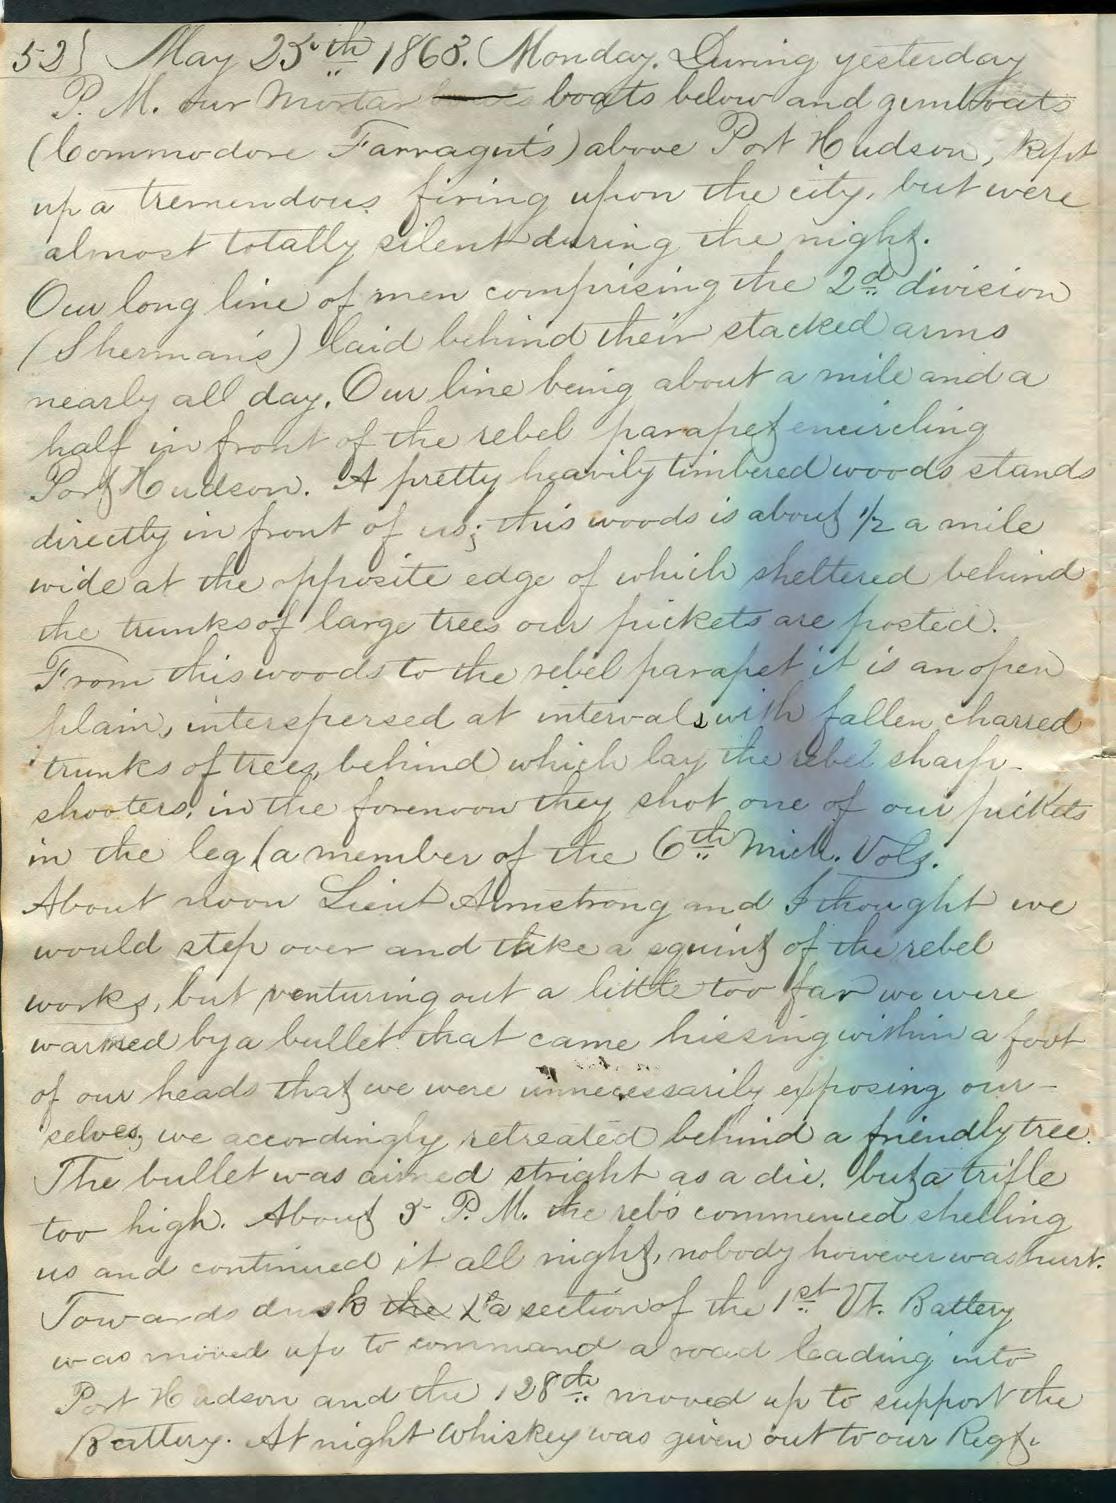 52} May 25th 1863. (Monday. During yesterday
P. M. our Mortar boats below and gunboats
(Commodore Farragut's) above Port Hudson, kept
up a tremendous firing upon the city, but were
almost totally silent during the night.
Our long line of men comprising the 2d division
(Sherman's) laid behind their stacked arms
nearly all day. Our line being about a mile and a
half in front of the rebel parapet encircling
Port Hudson. A pretty heavily timbered woods stands
directly in front of us; this woods is about 1/2 a mile
wide at the opposite edge of which sheltered behind
the trunks of large trees our pickets are posted.
From this woods to the rebel parapet it is an open
plain, interspersed at intervals with fallen charred
trunks of trees, behind which lay the rebel sharp-
shooters, in the forenoon they shot one of our pickets
in the leg (a member of the 6th Mich. Vols.
About noon Lieut Armstrong and I thought we
would step over and take a squint of the rebel
works, but venturing out a little too far we were
warned by a bullet that came hissing within a foot
of our heads that we were unnecessarily exposing our-
selves, we accordingly retreated behind a friendly tree.
The bullet was aimed stright as a die, but a trifle
too high. About 5 P. M. the rebs commenced shelling
us and continued it all night, nobody however was hurt.
Towards dusk the a section of the 1st Vt. Battery
was moved up to command a road leading into
Port Hudson and the 128th moved up to support the
Battery. At night Whiskey was given out to our Regt.